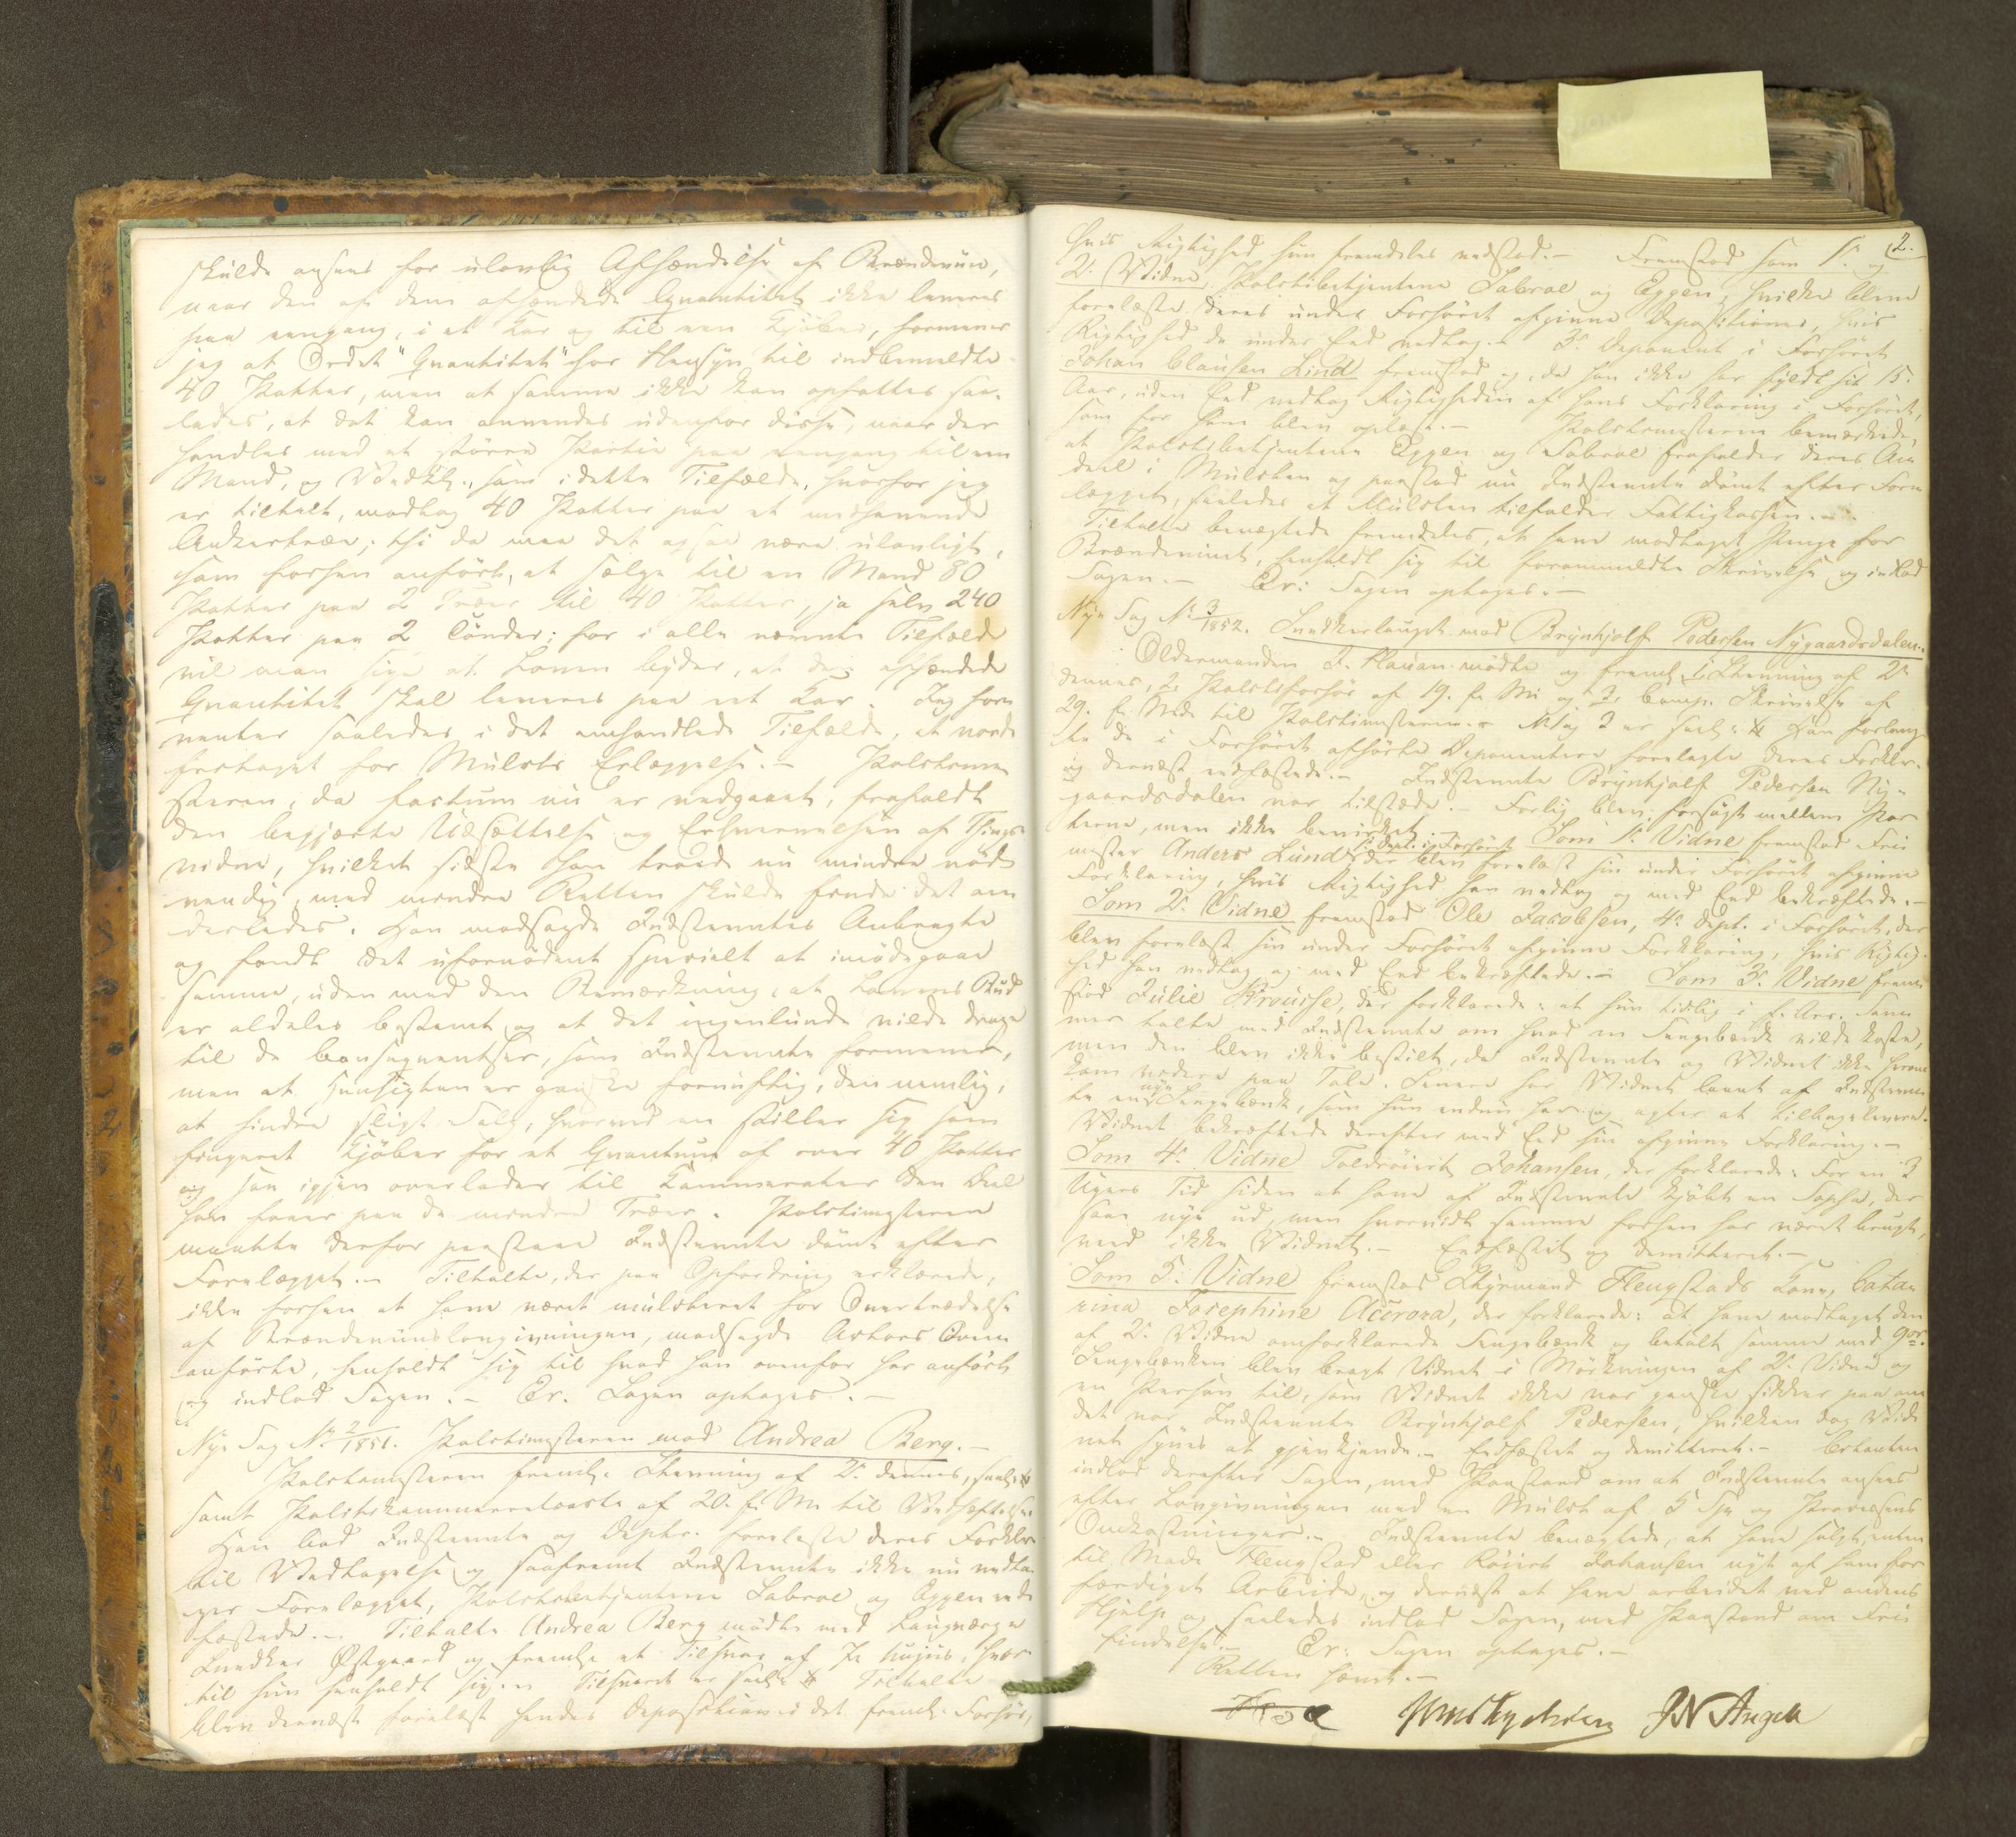 skulde ansees for ulovlig Afhændelse af Brændeviin,
naar den af dem afhændede Qvantitet ikke leveres
paa eengang, i et Kar og til een Kjøber, formener
jeg at Ordet "Qvantitet" har Hensyn til indbemeldte
40 Potter, men at samme ikke kan opfattes saa-
ledes, at det kan anvendes udenfor disse, naar der
handles med et større Partie paa eengang til een
Mand, og som i dette Tilfælde, hvorfor jeg
er tiltalt, modtog 40 Potter paa et
Ankertræe; thi da maa det ogsaa være ulovligt,
som forhen anført, at sælge til en Mand 80
Potter paa 2 Træer til 40 Potter, ja selv 240
Potter paa 2 Tønder; for i alle nævnte Tilfælde
vil man sige at Loven byder, at den afhændede
Qvantitet skal leveres paa et Kar. Jeg for-
venter saaledes i det omhandlede Tilfælde, at vorde
fritaget for Mulcts Erlæggelse.- Politieme-
steren, da factum nu er vedgaaet, frafaldt
den begjærte Udsættelse og Erhvervelsen af Things-
vidne, hvilket sidste han troede nu mindre nød-
vendig, med mindre Retten skulde finde det an-
derledes. Han modsagde Indstevntes Anbragte
og fandt det ufornødent specielt at imødegaae
samme, uden med den Bemærkning, at Lovens Bud
er aldeles bestemt og at det ingenlunde vilde drage
til de Consequentser, som Indstevnte formener,
men at Hensigten er ganske fornuftig, den nemlig,
at hindre sligt Salg, hvorved en stiller sig som
fingeret Kjøber for et Qvantum af over 40 Potter
og saa igjen overlader til Kammerater den Deel
han faaer paa de mindre Træer. Politimesteren
maatte derfor paastaae Indstevnte dømt efter
Forelægget.- Tiltalte, der paa Opfordring erklærede,
ikke forhen at have været mulcteret for Overtrædelse
af Brændeviinslovgivningen, modsagde Actors Oven-
anførte, henholdt sig til hvad han ovenfor har anført
og indlod Sagen.- Er. Sagen optages.-
Nye Sag No 2/1851. Politimesteren mod Andrea Berg.-
Politiemesteren freml. Stevning af 2. dennes, saal:
samt af 20. f. M. til Vedhæftelse.
Han bad Indstevnte og Depte. forelæste deres Forklar.
til Vedtagelse og saafremt Indstevnte ikke nu vedta-
ger Forelægget, Politibetjentene Sabroe og Eggen eed-
fæstede.- Tiltalte Andrea Berg mødte med Laugværge
Snedker Østgaard og fremlagde et Tilsvar af hujus, hvor-
til hun henholdt sig.- Tilsvaret er saal: Tiltalte
blev dernæst forelæst hendes Deposition i det freml. Forhør,
2.
hvis Rigtighed hun fremdeles vedstod.- Fremstod som 1. og
2. Vidne Politibetjentene Sabroe og Eggen, hvilke bleve
forelæste deres under Forhøret afgivne Depositioner, hvis
Rigtighed de under Eed vedtog.- 3. Deponent i Forhøret
Johan Clausen Lind fremstod og, da han ikke har fyldt sit 15.
Aar, uden Eed vedtog Rigtigheden af hans Forklaring i Forhøret,
som for ham blev oplæst.- Politiemesteren bemærkede,
at Politibetjentene Eggen og Sabroe frafalder deres An-
deel i Mulcten og paastod nu Indstevnte dømt efter Fore-
lægget, saaledes at Mulcten tilfalder Fattigkassen.-
Tiltalte benægtede fremdeles, at have modtaget Penge for
Brændevinet, henholdt sig til foranmeldte Skrivelse og indlod
Sagen.- Er: Sagen optages.-
Nye Sag No 3/1852. Snedkerlauget mod Brynhjolf Pedersen Nygaardsdalen.
Oldermanden J. Hauan mødte og freml. 1, Stevning af 2.
dennes, 2, Politiforhør af 19. f. M. og 3, Comp. Skrivelse af
29. f. Md. til Politimesteren.- No 1 og 3 er saal: Han forlang-
te de i Forhøret afhørte Deponentere forelagte deres Forklar.
og dernæst eedfæstede.- Indstevnte Brynhjolf Pedersen Ny-
gaardsdalen var tilstæde.- Forlig blev forsøgt mellem Par-
terne, men ikke bevirket.- Som 1. Vidne fremstod Fri-
mester Anders Lund, Dept. i Forhøret der blev forelæst sin under Forhøret afgivne
Forklaring, hvis Rigtighed han vedtog og med Eed bekræftede.-
Som 2. Vidne fremstod Ole Jacobsen, 4. Dept. i Forhøret, der
blev forelæst sin under Forhøret afgivne Forklaring, hvis Rigtig-
hed han vedtog og med Eed bekræftede.- Som 3. Vidne frem-
stod Julie Krousse, der forklarede: at hun tidlig i f. Aar. Som-
mer talte med Indstevnte om hvad en Sengebænk vilde koste,
men den blev ikke bestilt, da Indstevnte og Vidnet ikke
kom videre paa Tale. Senere har Vidnet laant af Indstevn-
te en nye Sengebænk, som hun endnu har og agter at tilbagelevere.
Vidnet bekræftede derefter med Eed sin afgivne Forklaring.-
Som 4. Vidne Toldroierer Johansen, der forklarede: For en 3
Ugers Tid siden at have af Indstevnte kjøbt en Sopha, der
saae nye ud, men hvorvidt samme forhen har været brugt,
veed ikke Vidnet.- Eedfæstet og demitteret.-
Som 5. Vidne fremstod Styrmand Flengstads Kone, Catha-
rina Josephine Aurora, der forklarede: at have modtaget den
af 2. Vidne omforklarede Sengebænk og betalt samme med
Sengebænken blev bragt Vidnet i Mørkningen af 2. Vidne og
en Person til, som Vidnet ikke var ganske sikker paa om
det var Indstevnte Brynhjolf Pedersen, hvilken dog Vid-
net synes at gjenkjende.- Eedfæstet og demitteret.- Citanten
indlod derefter Sagen, med Paastand om at Indstevnte ansees
efter Lovgivningen med en Mulct af 5 Spd og Processens
Omkostninger.- Indstevnte benægtede, at have solgt, enten
til Mad. Flengstad eller Roierer Johansen nyt af ham for-
færdiget Arbeide, og dernæst at have arbeidet med andens
Hjælp og saaledes indlod Sagen, med Paastand om Fri-
findelse.- Er: Sagen optages.-
Retten hævet.-
J N Angell